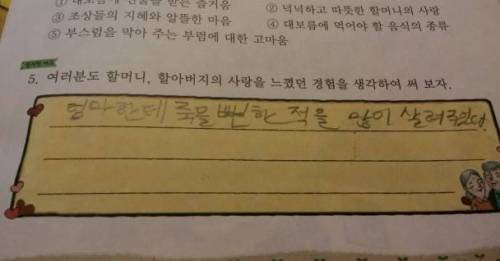 ① 대보름에 선물을 받는 즐거움 ② 넉넉하고 따뜻한 할머니의 사랑
③ 조상들의 지혜와 알뜰한 마음 ④ 대보름에 먹어야 할 음식의 종류
⑤ 부스럼을 막아 주는 부럼에 대한 고마움
5. 여러분도 할머니, 할아버지의 사랑을 느꼈던 경험을 생각하여 써 보자.
엄마한테 죽을뻔한 적을 많이 살려주었다.